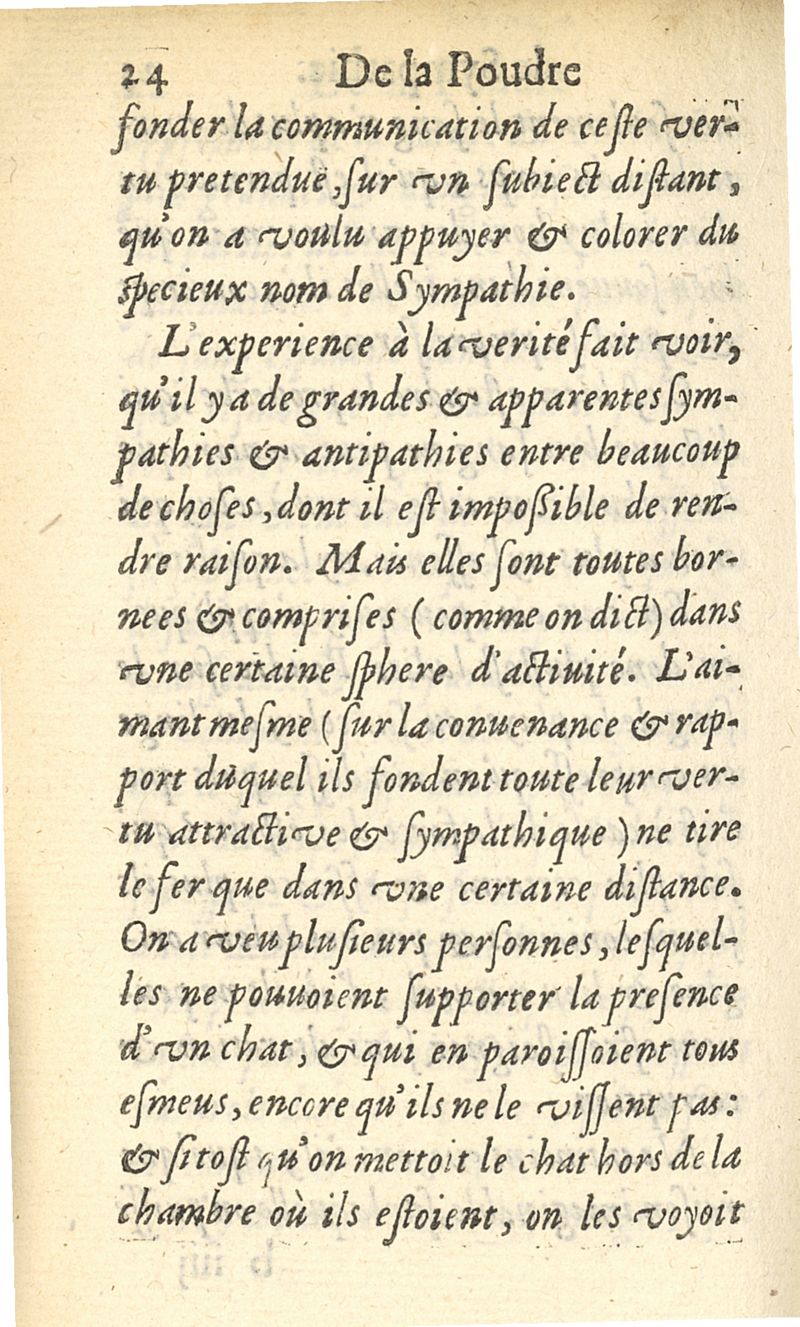 24 De la Poudre
fonder la communication de ceſte ver-
tu pretenduë, ſur vn ſubiect diſtant,
qu'on a voulu appuyer & colorer du
ſpecieux nom de Sympathie.
L'experience à la verité fait voir,
qu'il y a de grandes & apparentes ſym-
pathies & antipathies entre beaucoup
de choſes, dont il eſt impoßible de ren-
dre raiſon. Mais elles ſont toutes bor-
nees & compriſes (comme on dict) dans
vne certaine ſphere d'actiuité. L'ai-
mant meſme (ſur la conuenance & rap-
port duquel ils fondent toute leur ver-
tu attractive & ſympathique) ne tire
le fer que dans vne certaine diſtance.
On a veu pluſieurs perſonnes, leſquel-
les ne pouuoient ſupporter la preſence
d'vn chat, & qui en paroiſſoient tous
eſmeus, encore qu'ils ne le viſſent pas:
& ſi toſt qu'on mettoit le chat hors de la
chambre où ils eſtoient, on les voyoit